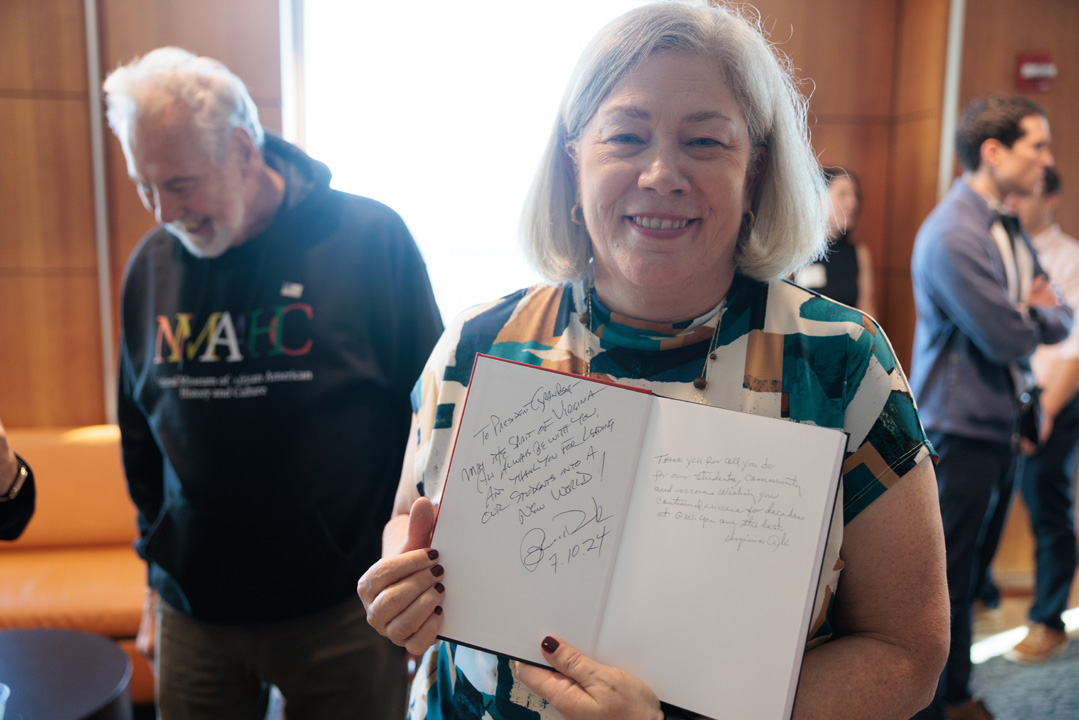 NMAAHC
National Museum of African American
History and Culture
To President Granberg -
May the Spirit of Virginia
Always be with you,
And thank you for leading
our students into a
New World!
7.10.24
Thank you for all you do
for our students, community
and
Wishing you
continued success for decades
at GW. You are the best.
Virginia